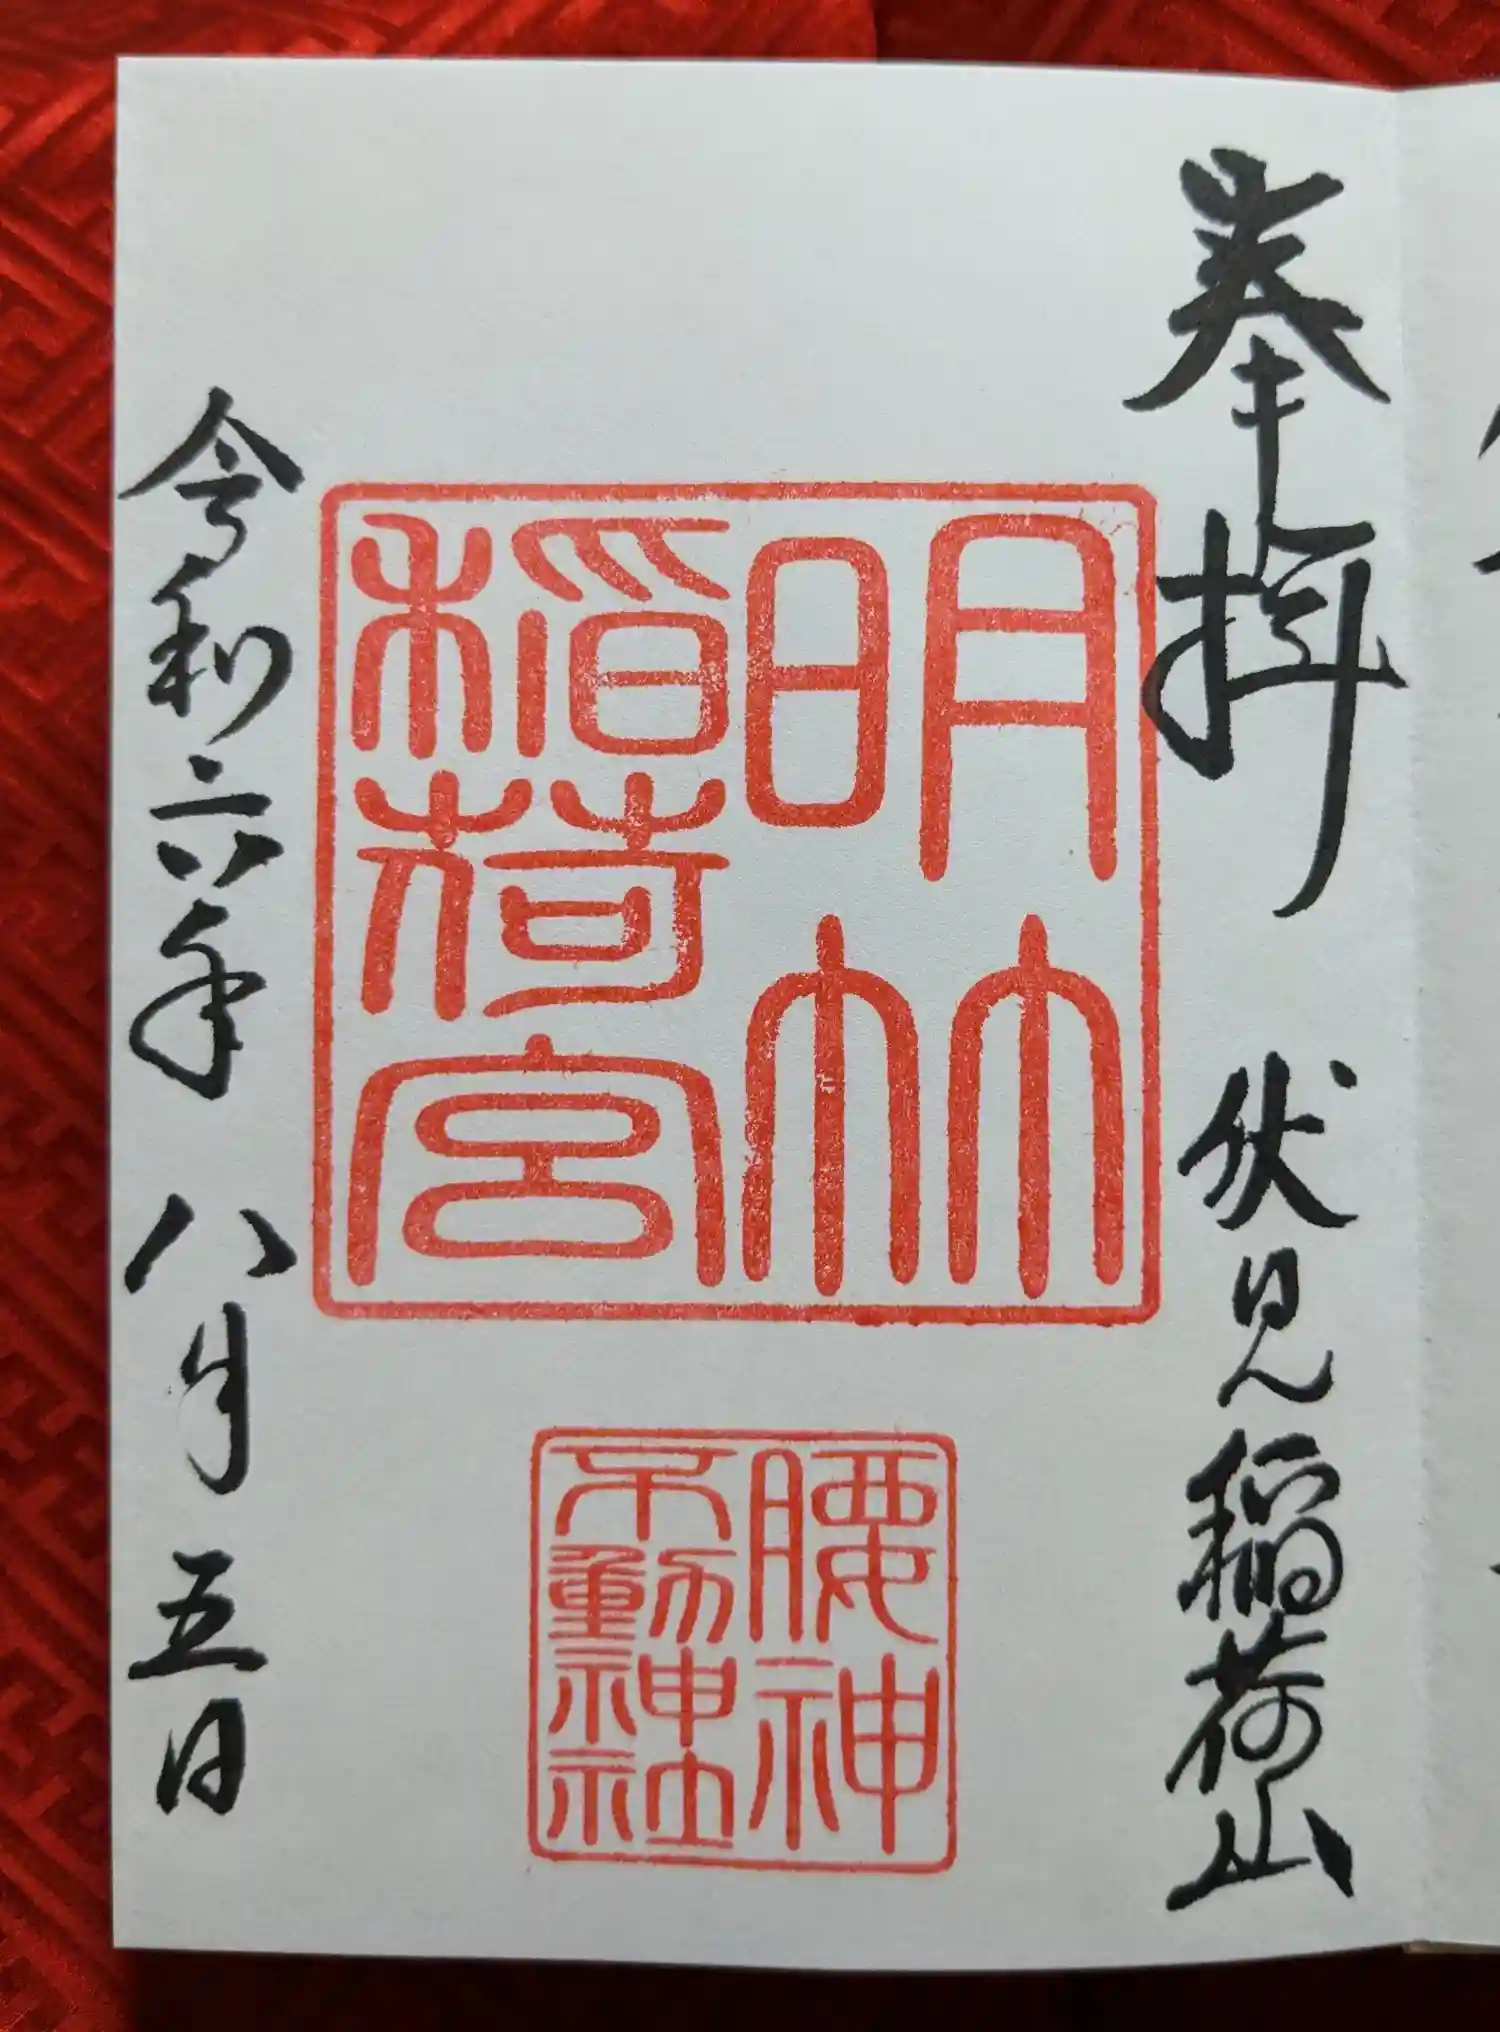 奉拝
伏見稲荷山
明竹
稲荷宮
腰神
不動神社
令和六年
八月五日